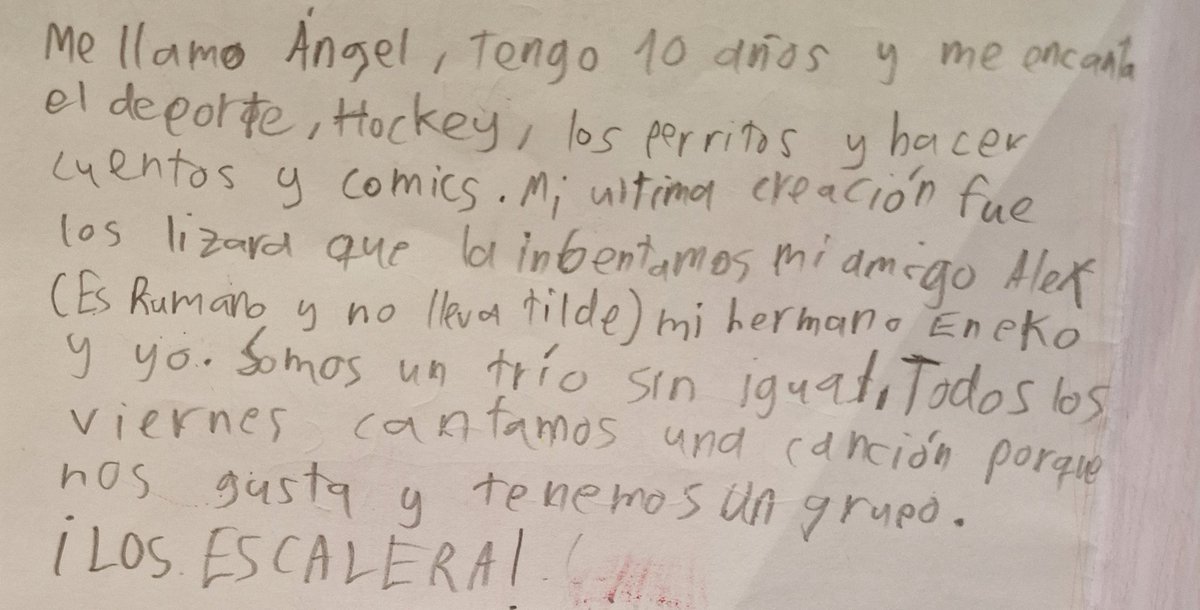 Me llamo Ángel, Tengo 10 años y me encanta
el deporte, Hockey, los perritos y hacer
cuentos y comics. Mi ultima creación fue
los lizard que la inbentamos mi amigo Alex
(Es Rumano y no lleva tilde) mi hermano Eneko
y yo. Somos un trío sin igual, Todos los
viernes cantamos una canción porque
nos gusta y tenemos un grupo.
¡LOS ESCALERA!